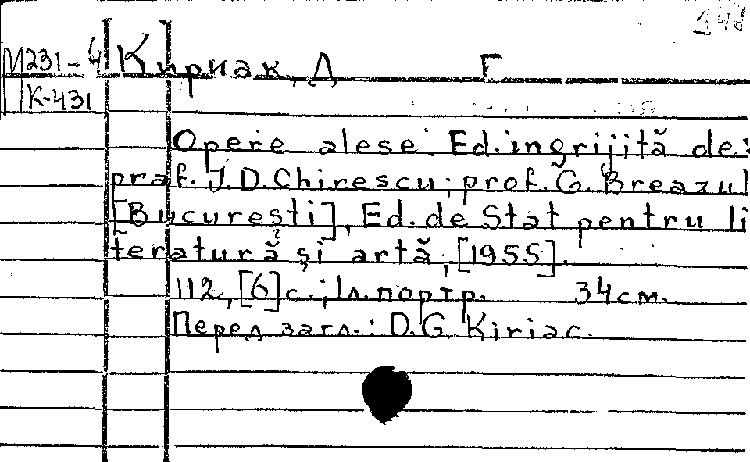 М231-4 Кириак, Д Г
К-431
Opere alese. Ed. ingrijită de:
prof. I.D. Chirescu; prof. G. Breazul
[Bucureşti], Ed. de Stat pentru li
teratură şi artă, [1955].
112, [6] с.; 1 л. портр. 34 см.
Перед загл.: D.G. Kiriac.